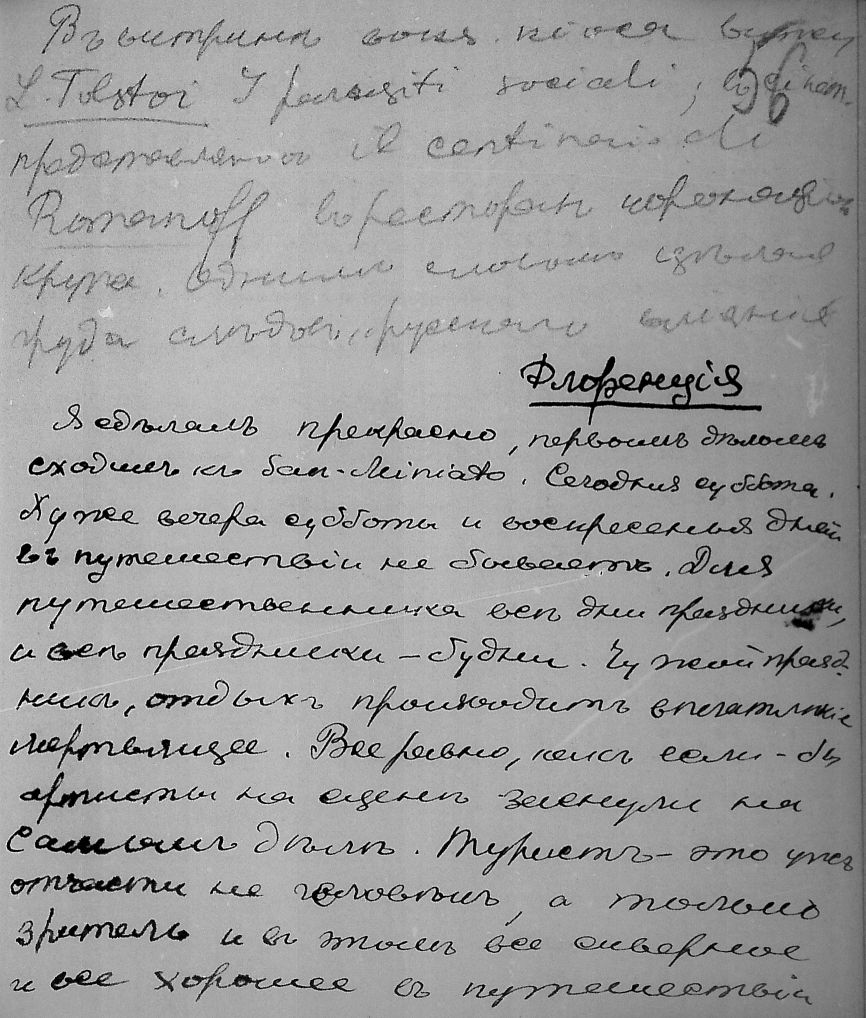 Въ витринѣ окна кіоска вижу
L. Tolstoi I parasiti sociali; въ синем.
представленіи il centinario di
Romanoff въ ресторанѣ
крупа. Однимъ словомъ цѣлая
груда слѣдовъ русскаго вліянія
56
Флоренція
Я сдѣлалъ прекрасно, первымъ дѣломъ
сходилъ къ San-Miniato. Сегодня суббота.
Хуже вечера субботы и воскресенья дней
въ путешествіи не бываетъ. Для
путешественника всѣ дни праздники,
и всѣ праздники – будни. Чужой празд-
никъ, отдыхъ производитъ впечатлѣніе
мертвящее. Все равно, какъ если-бы
артисты на сценѣ заснули на
самомъ дѣлѣ. Туристъ – это ужъ
отчасти не человѣкъ, а только
зритель и въ этомъ все скверное
и все хорошее въ путешествіи